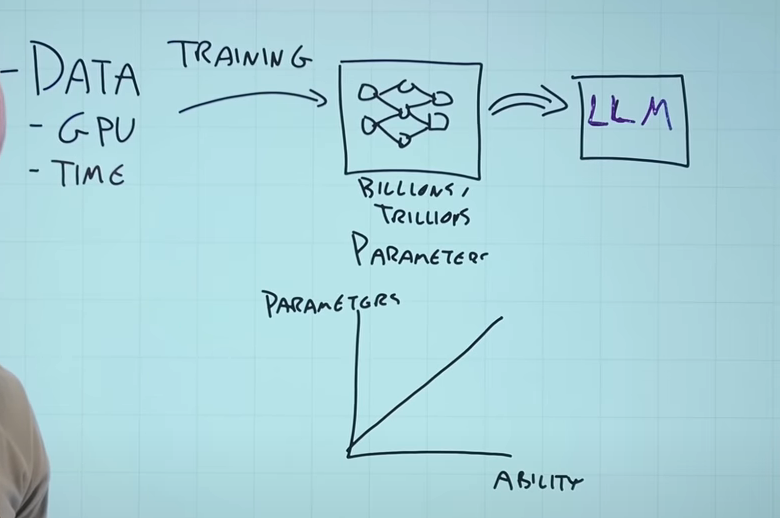 - DATA
- GPU
- TIME
TRAINING
BILLIONS,
TRILLIONS
PARAMETERS
LLM
PARAMETERS
ABILITY